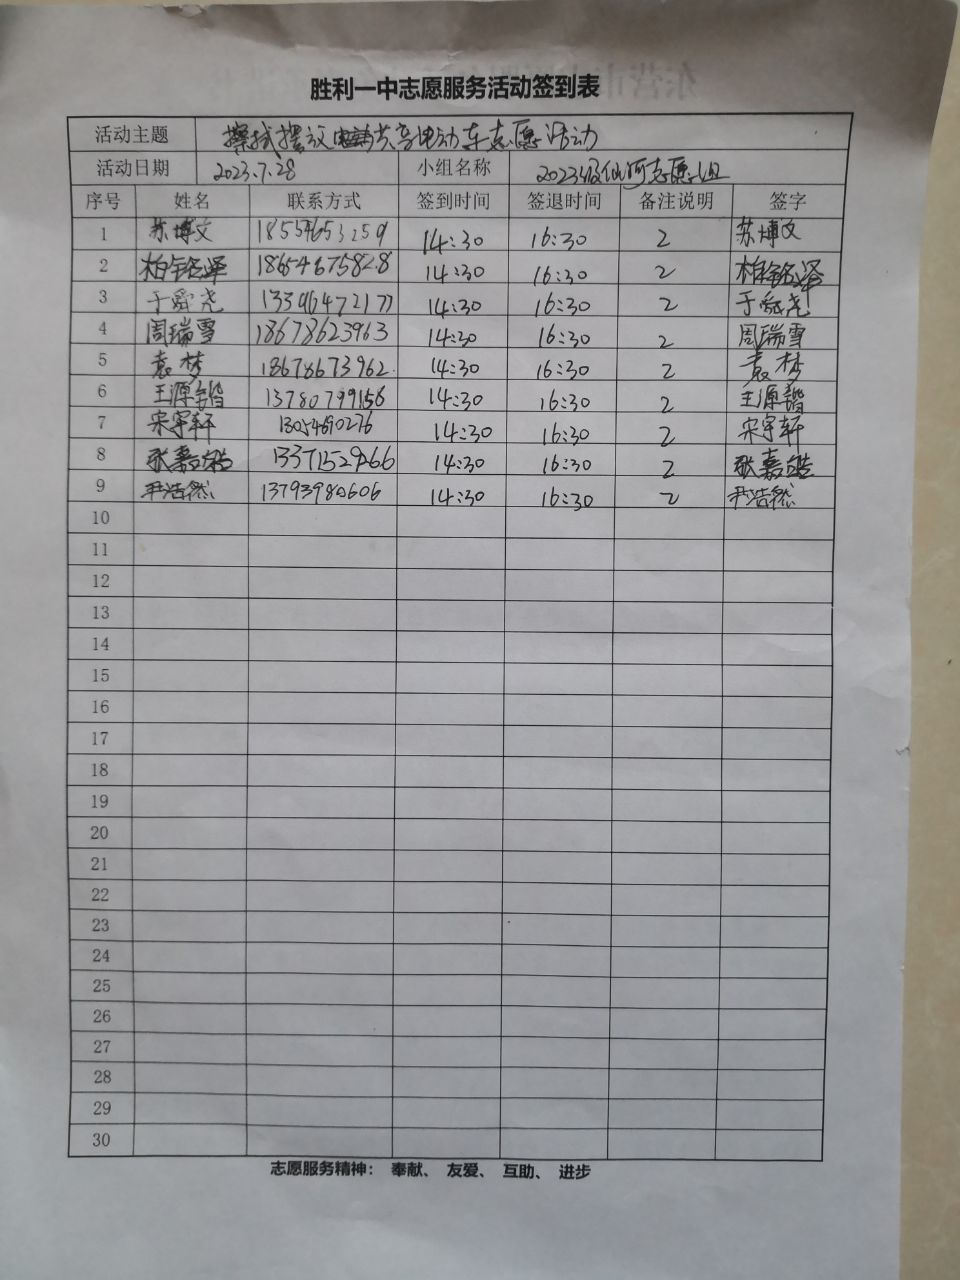 胜利一中志愿服务活动签到表
活动主题 擦拭摆放共享电动车志愿活动
活动日期 2023.7.28 小组名称 2023级仙河志愿小组
序号 姓名 联系方式 签到时间 签退时间 备注说明 签字
1 苏博文 18554653259 14:30 16:30 2 苏博文
2 柏铭泽 18654675828 14:30 16:30 2 柏铭泽
3 于舜尧 13396472177 14:30 16:30 2 于舜尧
4 周瑞雪 18678623963 14:30 16:30 2 周瑞雪
5 袁梦 18678673962 14:30 16:30 2 袁梦
6 王源锴 13780799156 14:30 16:30 2 王源锴
7 宋宇轩 13054690276 14:30 16:30 2 宋宇轩
8 张嘉皓 13371529266 14:30 16:30 2 张嘉皓
9 尹浩然 13793980606 14:30 16:30 2 尹浩然
10
11
12
13
14
15
16
17
18
19
20
21
22
23
24
25
26
27
28
29
30
志愿服务精神： 奉献、 友爱、 互助、 进步